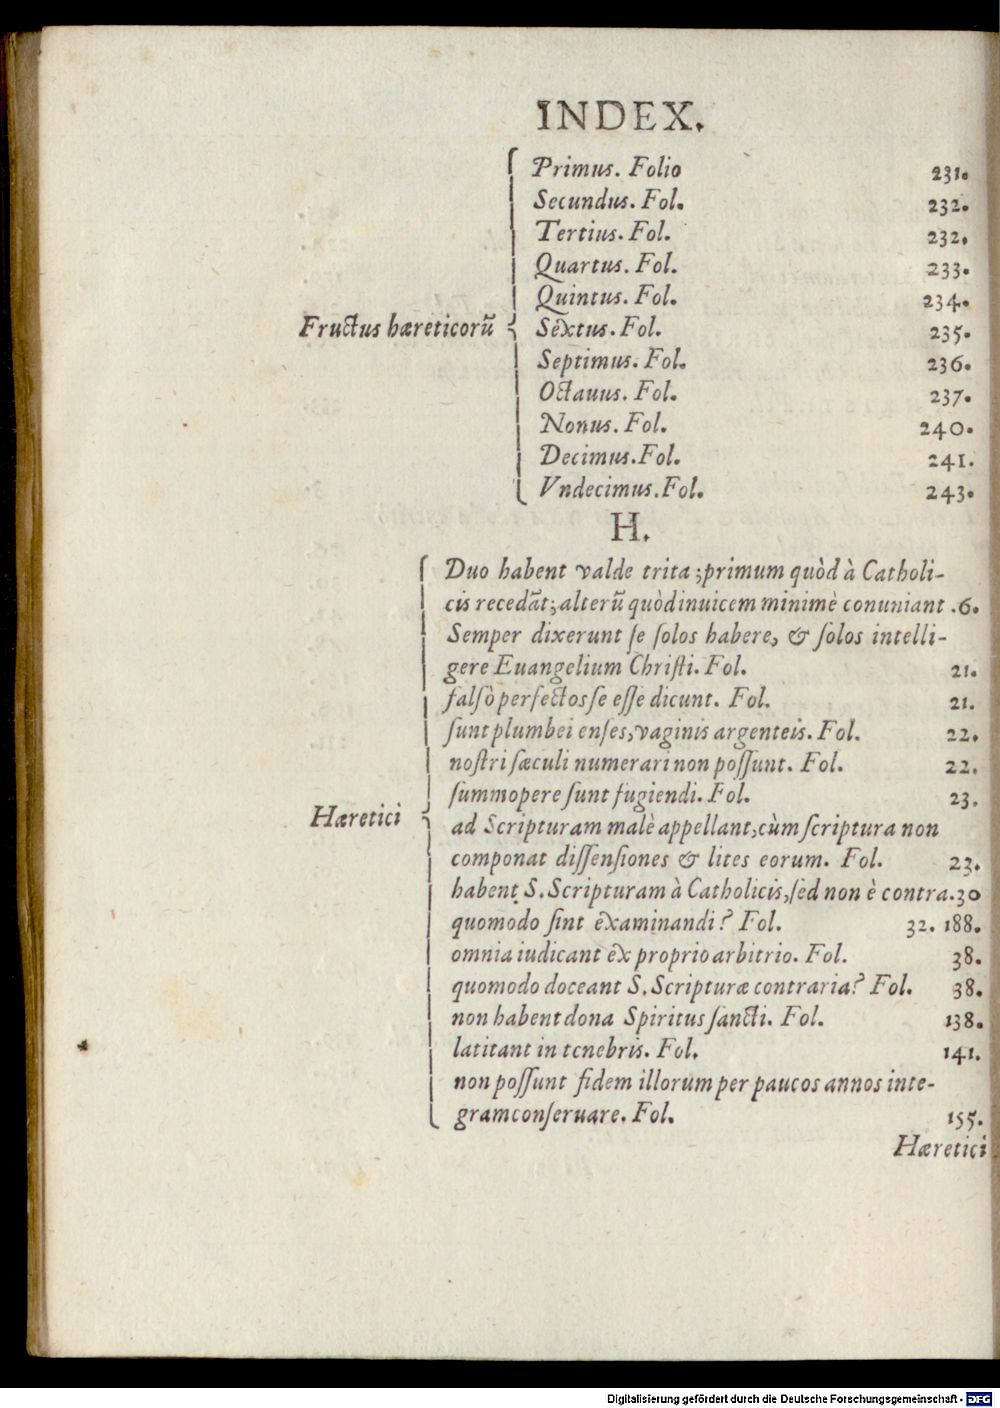 INDEX.
Primus. Folio 231.
Secundus. Fol. 232.
Tertius. Fol. 232.
Quartus. Fol. 233.
Quintus. Fol. 234.
Fructus hæreticorũ { Sextus. Fol. 235.
Septimus. Fol. 236.
Octauus. Fol. 237.
Nonus. Fol. 240.
Decimus. Fol. 241.
Vndecimus. Fol. 243.
H.
Duo habent valde trita; primum quòd à Catholi-
cis recedãt; alterũ quòd inuicem minimè conuniant .6.
Semper dixerunt ſe ſolos habere, & ſolos intelli-
gere Euangelium Chriſti. Fol. 21.
falſò perfectos ſe eſſe dicunt. Fol. 21.
ſunt plumbei enſes, vaginis argenteis. Fol. 22.
noſtri ſæculi numerari non poſſunt. Fol. 22.
ſummopere ſunt fugiendi. Fol. 23.
Hæretici { ad Scripturam malè appellant, cùm ſcriptura non
componat diſſenſiones & lites eorum. Fol. 23.
habent S. Scripturam à Catholicis, ſed non è contra. 30
quomodo ſint examinandi? Fol. 32. 188.
omnia iudicant ex proprio arbitrio. Fol. 38.
quomodo doceant S. Scripturæ contraria? Fol. 38.
non habent dona Spiritus ſancti. Fol. 138.
latitant in tenebris. Fol. 141.
non poſſunt fidem illorum per paucos annos inte-
gram conſeruare. Fol. 155.
Hæretici
Digitalisierung gefördert durch die Deutsche Forschungsgemeinschaft - DFG